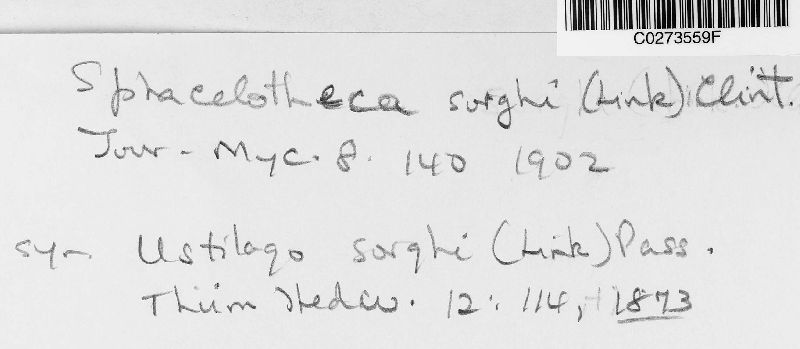 C0273559F
Sphacelotheca sorghi (Link) Clint.
Jour. Myc. 8. 140 1902
syn. Ustilago sorghi (Link) Pass.
Thüm Hedw. 12: 114, 1873